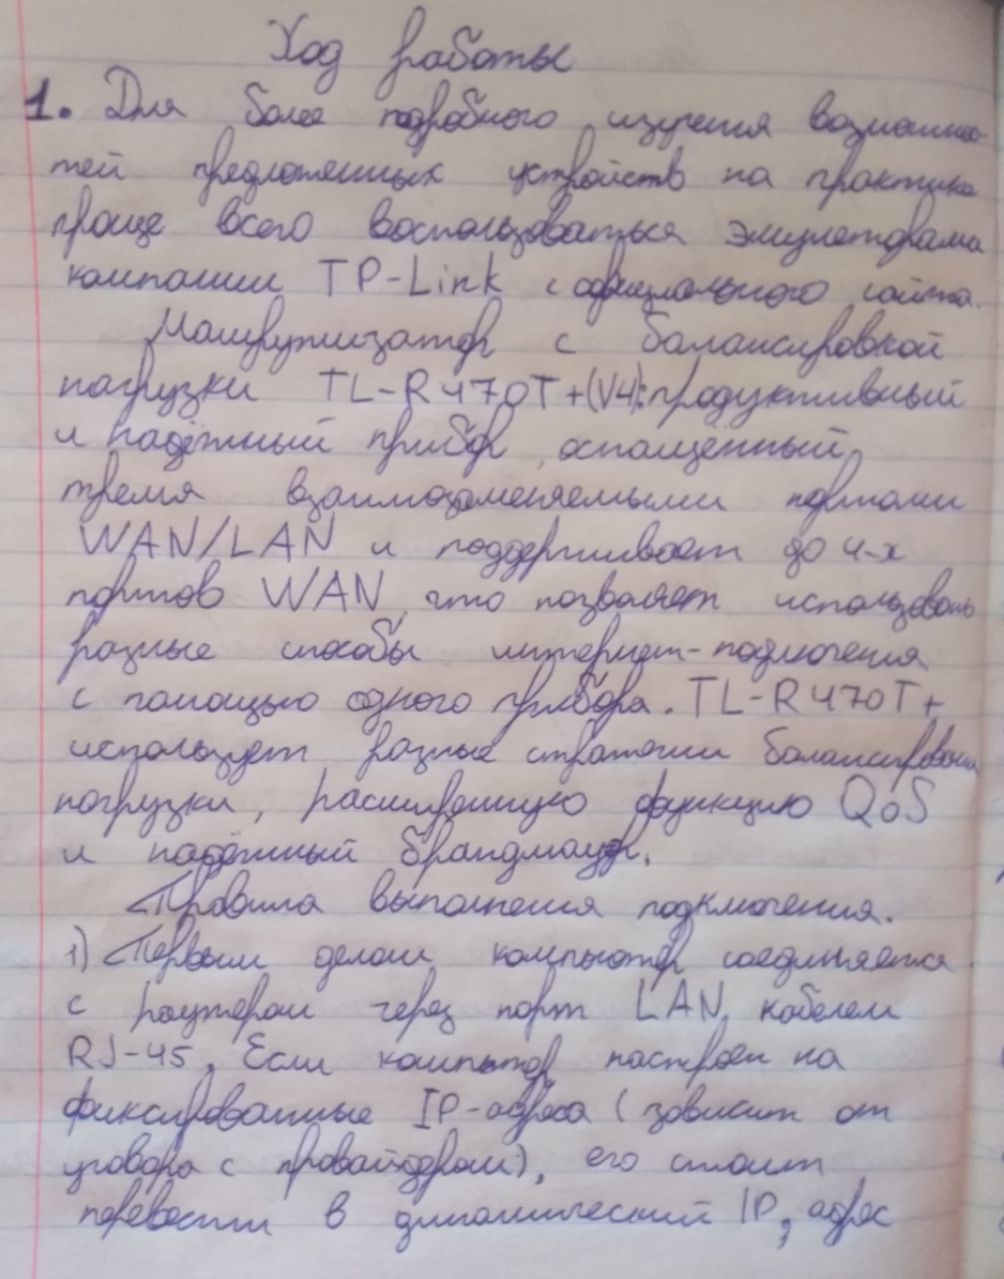 Ход работы
1. Для более подробного изучения возможнос-
тей предложенных устройств на практике
проще всего воспользоваться эмуляторами
компании TP-Link с официального сайта.
Маршрутизатор с балансировкой
нагрузки TL-R470T+(V4):продуктивный
и надёжный прибор, оснащенный
тремя взаимозаменяемыми портами
WAN/LAN и поддерживает до 4-х
портов WAN, что позволяет использовать
разные способы интернет-подключения
с помощью одного прибора. TL-R470T+
использует разные стратегии балансировки
нагрузки, расширенную функцию QoS
и надёжный брандмауэр.
Правила выполнения подключения.
1) Первым делом компьютер соединяется
с роутером через порт LAN, кабелем
RJ-45. Если компьютер настроен на
фиксированные IP-адреса (зависит от
уговора с провайдером), его стоит
перевести в динамический IP, адрес